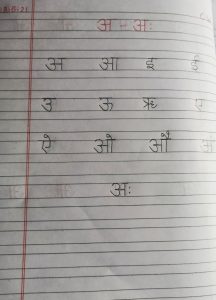 अ - अः
अ आ इ ई
उ ऊ ऋ ए
ऐ ओ औ अं
अः